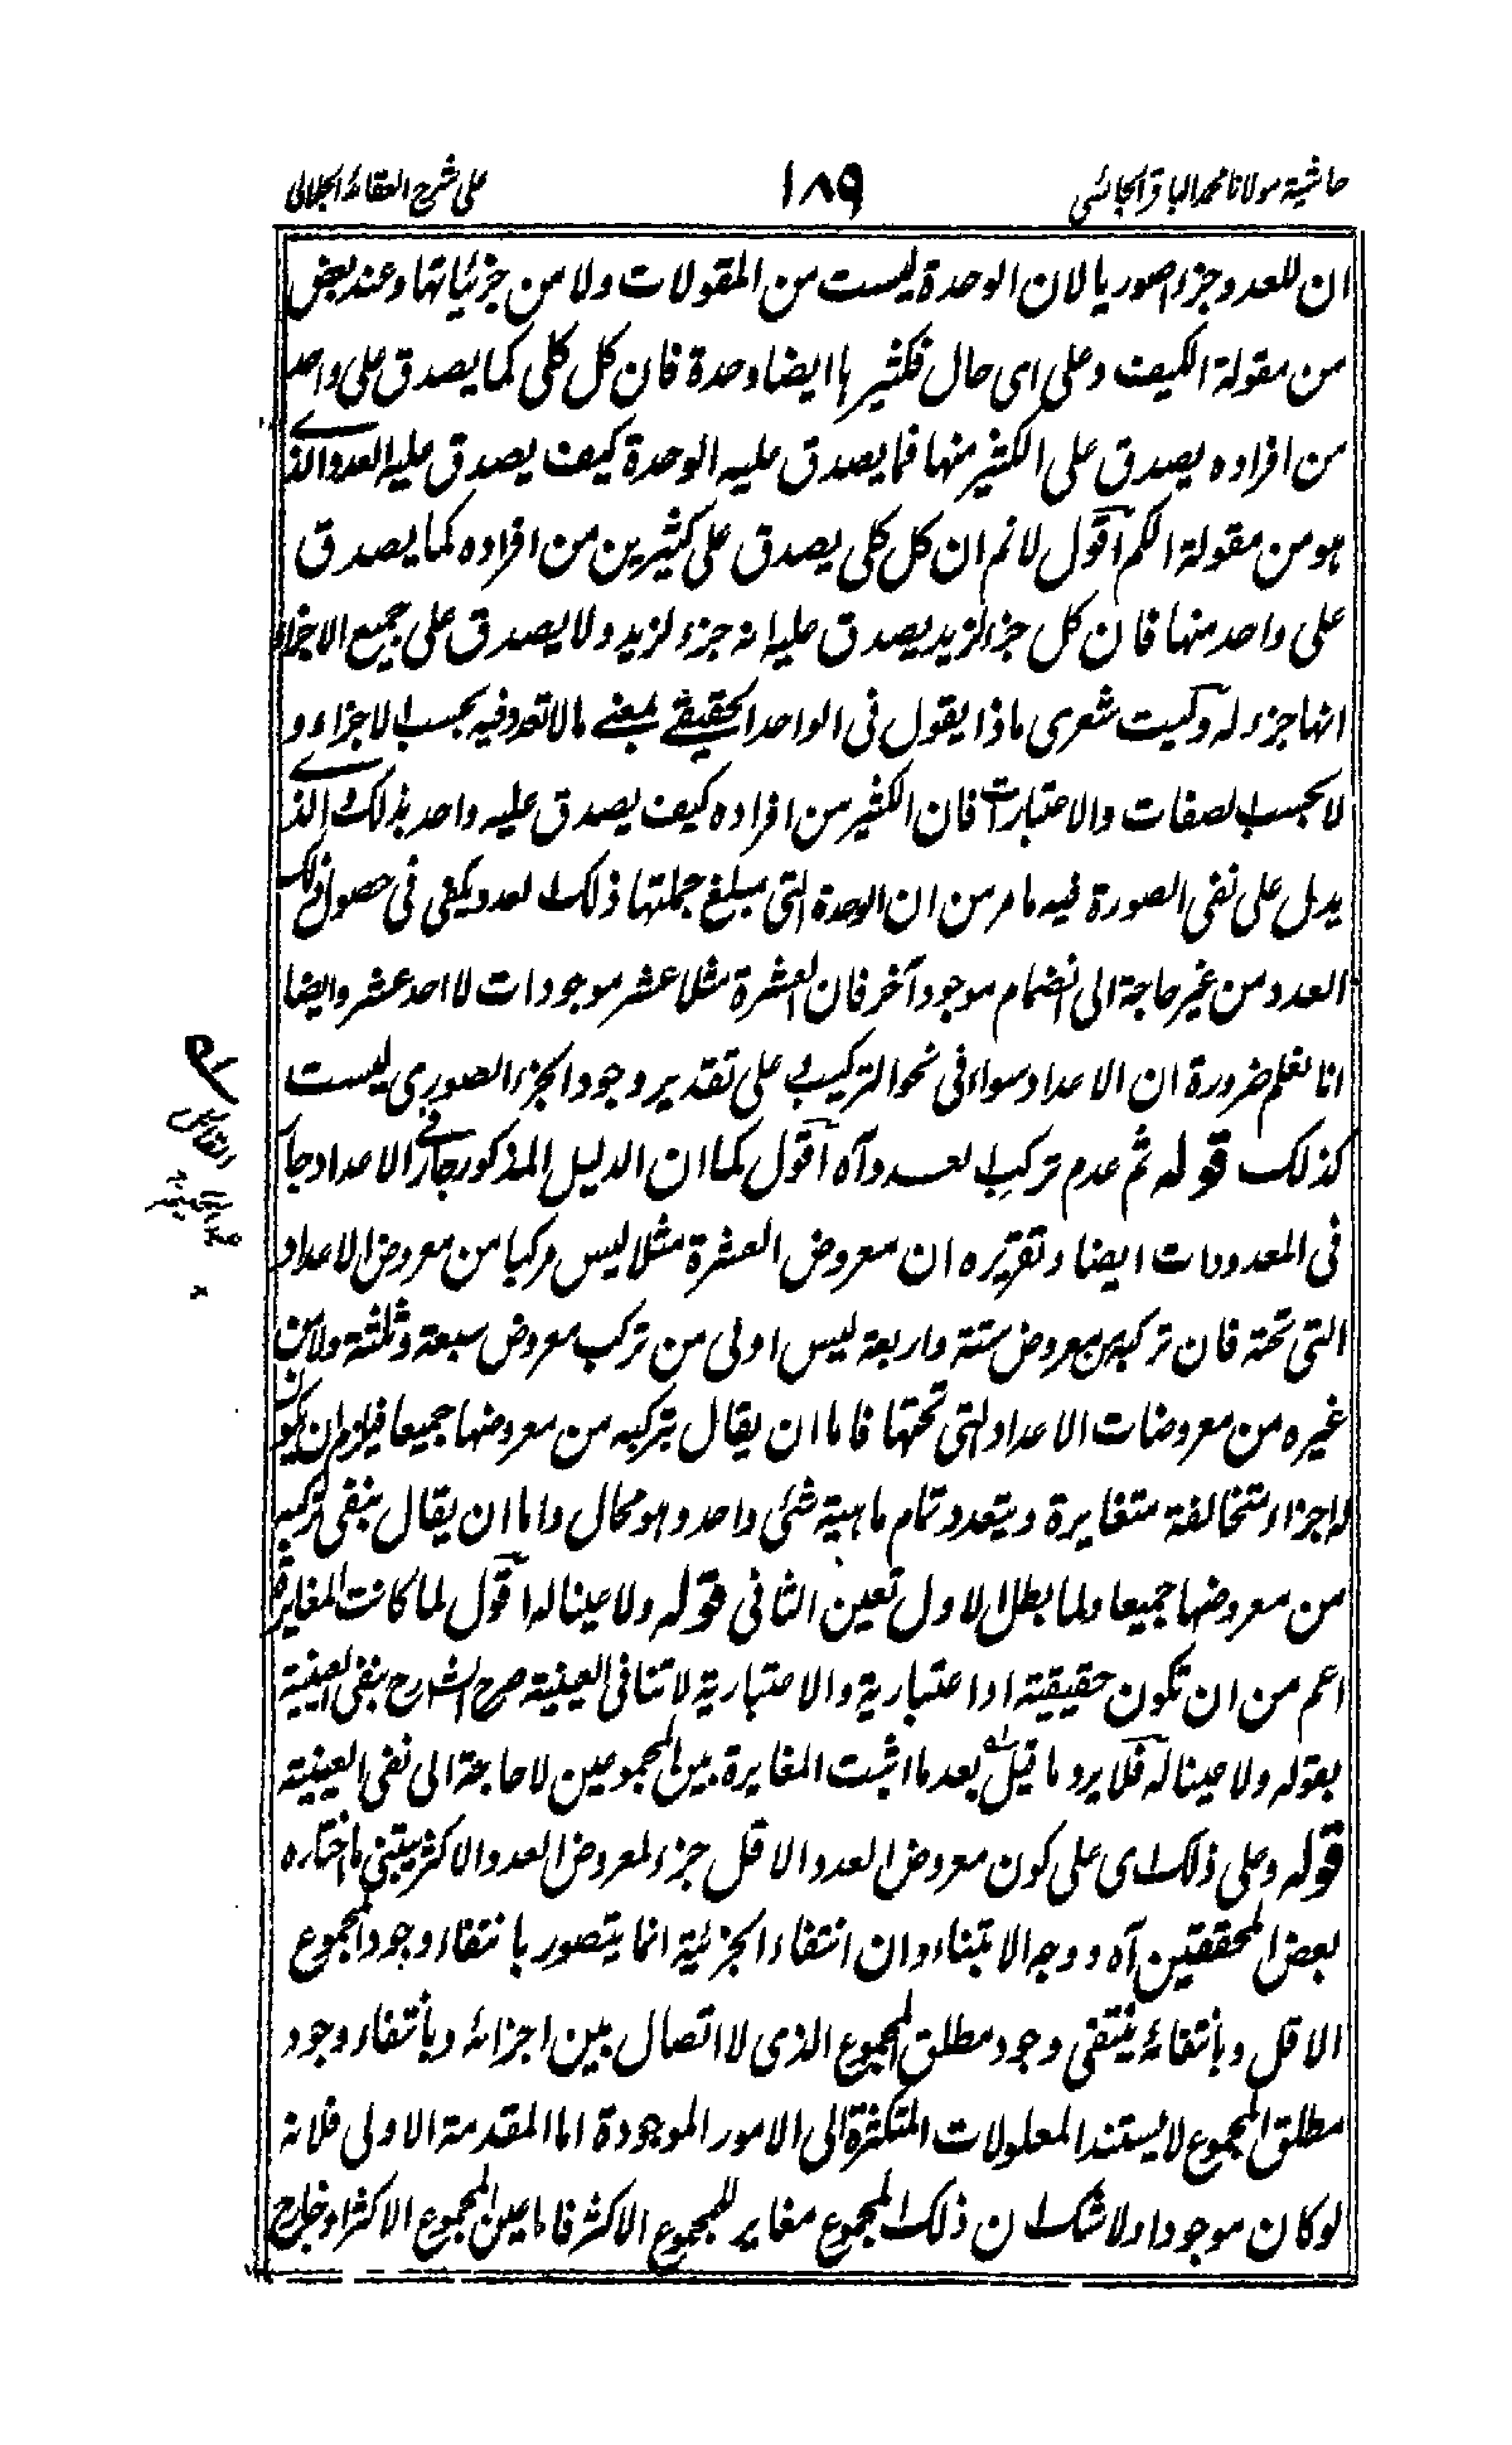 حاشية مولانا محمد الباقر الجائسى
١٨٩
على شرح العقائد الجلالى
ان للعدد جزء اصوريا لان الوحدة ليست من المقولات ولا من جزئياتها وعند بعض
من مقولة الكيف وعلى اى حال فكثيرها ايضا وحدة فان كل كلى كما يصدق على واحد
من افراده يصدق على الكثير منها فما يصدق عليه الوحدة كيف يصدق عليه العدد الذے
هو من مقولة الكم اقول لا نم ان كل كلى يصدق على كثيرين من افراده كما يصدق
على واحد منها فان كل جزء لزيد يصدق عليه انه جزء لزيد ولا يصدق على جميع الاجزاء
انها جزء له وليت شعرى ماذا يقول فى الواحد الحقيقے بمعنے ما لا تعدد فيه بحسب الاجزاء و
لا بحسب الصفات والاعتبارات فان الكثير من افراده كيف يصدق عليه واحد بذلك الذے
يدل على نفى الصورة فيه ما مر من ان الوحدة التى مبلغ جملتها ذلك العدد يكفى فى حصول ذلك
العدد من غير حاجة الى انضمام موجود آخر فان العشرة مثلا عشر موجودات لا احد عشر وايضا
انا نعلم ضرورة ان الاعداد سواء فى نحو التركيب على تقدير وجود الجزء الصورى ليست
كذلك قوله ثم عدم تركيب العدد آه اقول كما ان الدليل المذكور جار فے الاعداد جار
فى المعدودات ايضا وتقريره ان معروض العشرة مثلا ليس مركبا من معروض الاعداد
التى تحته فان تركبه من معروض ستة واربعة ليس اولى من تركب معروض سبعة وثلثة ولا من
غيره من معروضات الاعداد التى تحتها فاما ان يقال بتركبه من معروضها جميعا فيلزم ان يكون
له اجزاء متخالفة متغايرة ويتعدد تمام ماهية شئى واحد وهو محال واما ان يقال بنفى تركبه
من معروضها جميعا ولما بطل الاول تعين الثانى قوله ولا عينا له اقول لما كانت المغايرة
اعم من ان تكون حقيقية او اعتبارية والاعتبارية لا تنافى العينية صرح الشارح بنفى العينية
بقوله ولا عينا له فلا يرد ما قيل بعد ما اثبت المغايرة بين المجموعين لا حاجة الى نفى العينية
قوله وعلى ذلك اى على كون معروض العدد الاقل جزء لمعروض العدد الاكثر يبتنى ما اختاره
بعض المحققين آه ووجه الابتناء ان انتفاء الجزئية انما يتصور بانتفاء وجود المجموع
الاقل وبانتفائه ينتفى وجود مطلق المجموع الذى لا اتصال بين اجزائه وبانتفاء وجود
مطلق المجموع لا يستند المعلولات المتكثرة الى الامور الموجودة اما المقدمة الاولى فلانه
لو كان موجودا ولا شك ان ذلك المجموع مغاير للمجموع الاكثر فاما عين المجموع الاكثر او خارج